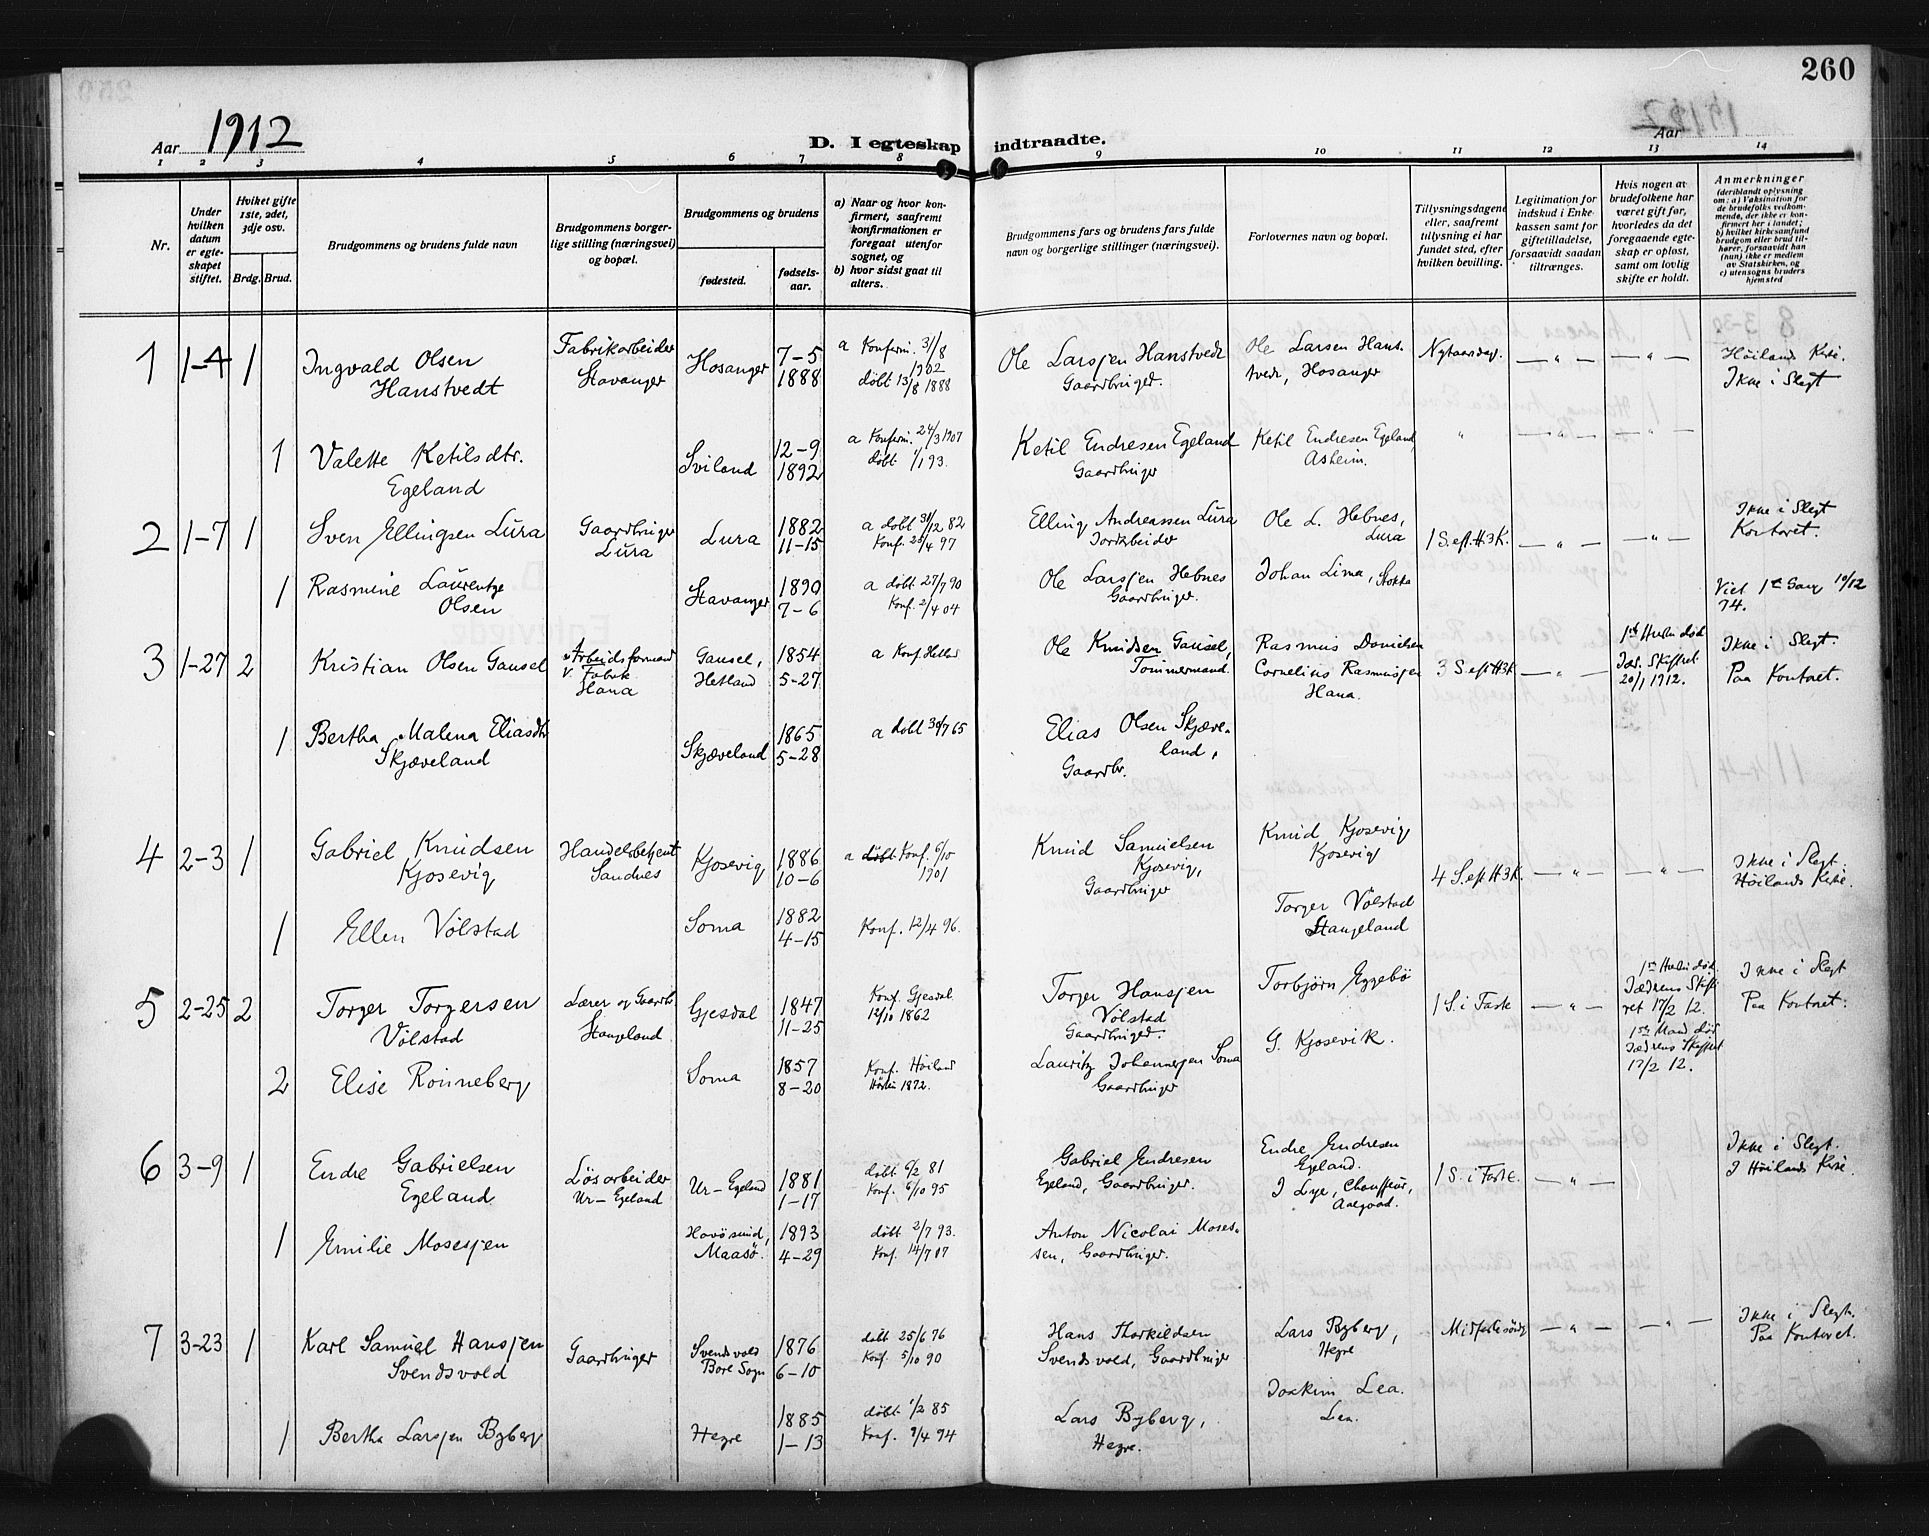 260
Aar 1912
D. I egteskap indtraadte.
Aar
1 2 3 4 5 6 7 8 9 10 11 12 13 14
Nr.
Under hvilken datum er egteskapet stiftet.
Hviket gifte 1ste, 2det, 3dje osv.
Brdg. Brud.
Brudgommens og brudens fulde navn
Brudgommens borgerlige stilling (næringsvei) og bopæl.
Brudgommens og brudens
fødested.
fødselsaar.
a) Naar og hvor konfirmert, saafremt konfirmationen er foregaat utenfor sognet, og
b) hvor sidst gaat til alters.
Brudgommens fars og brudens fars fulde navn og borgerlige stillinger (næringsvei).
Forlovernes navn og bopæl.
Tillysningsdagene eller, saafremt tillysning ei har fundet sted, efter hvilken bevilling.
Legitimation for indskud i Enkekassen samt for giftetilladelse, forsaavidt saadan tiltrænges.
Hvis nogen av brudefolkene har været gift før, hvorledes da det foregaaende egteskap er opløst, samt om lovlig skifte er holdt.
Anmerkninger
(deriblandt oplysning om: a) Vaksination for de brudefolks vedkommende, der ikke er konfirmert her i landet; b) hvilket kirkesamfund brudgom eller brud tilhører, forsaavidt han (hun) ikke er medlem av Statskirken, og c) utensogns bruders hjemsted
1 1-4 1 Ingvald Olsen Hanstvedt Fabrikarbeider Stavanger Hosanger 7-5 1888 a Konferm. 31/8 1902 døbt 13/8 1888 Ole Larsjen Hanstvedt Gaardbruger. Ole Larsen Hanstvedt, Hosanger Nytaarsdag. — „ — — „ — Høilands Kirke. Ikke i Slegt
1 Valette Ketilsdtr. Egeland Sviland 12-9 1892 a Konferm. 24/3 1907 døbt 1/1 93. Ketil Endresen Egeland Gaardbruger Ketil Endresen Egeland, Asheim. „ — „ — — „ —
2 1-7 1 Sven Ellingsen Lura Gaardbruger Lura Lura 1882 11-15 a døbt 31/12 82 Konf. 25/4 97 Elling Andreassen Lura Jordarbeider Ole L. Hebnes, Lura 1 S. eft. H3K. — „ — — „ — Ikke i Slegt Kontoret.
1 Rasmine Laurentze Olsen Stavanger 1890 7-6 a døbt 27/7 90 Konf. 2/4 04 Ole Larsjen Hebnes Gaardbruger. Johan Lima, Stokka
Viet 1ste Gang 10/12 74.
3 1-27 2 Kristian Olsen Gausel Arbeidsformand v. Fabrik Hana Gausel, Hetland 1854 5-27 a Konf. Hetland Ole Knudsen Gausel, Tømmermand. Rasmus Danielsen Cornelius Rasmusjen Hana. 3 S. eft H3K — „ — 1ste Hustru død Jæd. Skifteret 20/1 1912. Ikke i Slegt. Paa Kontoret.
1 Bertha Malena Eliasdtr Skjæveland Skjæveland 1865 5-28 a døbt 30/7 65 Elias Olsen Skjæveland, Gaardbr.
4 2-3 1 Gabriel Knudsen Kjosevig Handelsbetjent Sandnes Kjosevig 1886 10-6 a døbt Konf. 6/10 1901 Knud Samuelsen Kjosevig, Gaardbruger Knud Kjosevig Kjosevig 4 S. eft H3K. — „ — — „ — Ikke i Slegt. Høilands Kirke.
1 Ellen Vølstad Soma 1882 4-15 Konf. 12/4 96. Torger Vølstad Stangeland
5 2-25 2 Torger Torgersen Vølstad Lærer og Gaardb. Stangeland Gjesdal 1847 11-25 Konf. Gjesdal 12/10 1862 Torger Hansjen Vølstad Gaardbruger. Torbjørn Eggebø 1 S. i Faste — „ — 1ste Hustru død. Jædrens Skifteret 17/2 12. Ikke i Slegt Paa Kontoret.
2 Elise Rønneberg Soma 1857 8-20 Konf. Høiland Høsten 1872. Lauritz Johannesjen Soma Gaardbruger G. Kjosevik. 1ste Mand død Jædrens Skifteret 17/2 12.
6 3-9 1 Endre Gabrielsen Egeland Løsarbeider Ur-Egeland Ur-Egeland 1881 1-17 døbt 6/2 81 Konf. 6/10 95 Gabriel Endresen Egeland, Gaardbruger. Endre Endresen Egeland. J Lye, Chauffør, Aalgaard. 1 S. i Faste. — „ — Ikke i Slegt. I Høilands Kirke.
1 Emilie Mosesjen Havøsund, Maasø. 1893 4-29 døbt 2/7 93. Konf. 14/7 07 Anton Nicolai Mosessen, Gaardbruger.
7 3-23 1 Karl Samuel Hansjen Svendsvold Gaardbruger Svendsvold Bore Sogn 1876 6-10 døbt 25/6 76 Konf. 5/10 90 Hans Thorkildsen Svendsvold, Gaardbruger Lars Byberg, Hegre Midfastesøndg — „ — — „ — Ikke i Slegt. Paa Kontoret.
1 Bertha Larsjen Byberg Hegre 1885 1-13 døbt 1/2 85 Konf. 9/4 94 Lars Byberg, Hegre. Joakim Lea. Lea.